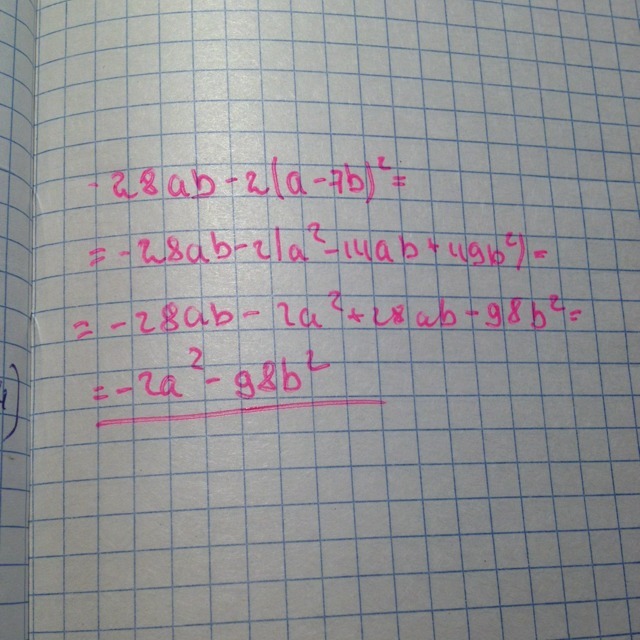 -28ab-2(a-7b)²=
=-28ab-2(a²-14ab+49b²)=
=-28ab-2a²+28ab-98b²=
=-2a²-98b²